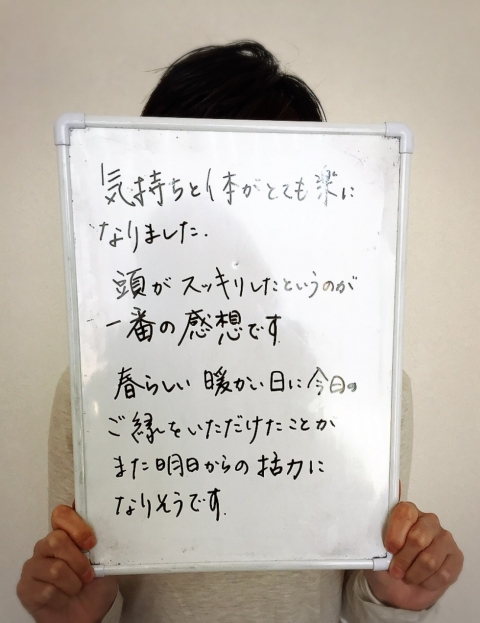 気持ちと体がとても楽に
なりました.
頭がスッキリしたというのが
一番の感想です
春らしい暖かい日に今日の
ご縁をいただけたことが
また明日からの活力に
なりそうです.